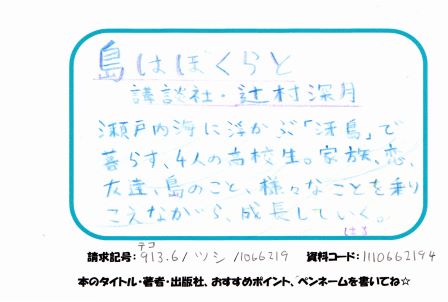 島はぼくらと
講談社・辻村深月
瀬戸内海に浮かぶ「冴島」で
暮らす、4人の高校生。家族、恋、
友達、島のこと、様々なことを乗り
こえながら、成長していく。
はる
テコ
請求記号: 913.6/ツシ/1066219 資料コード: 1110662194
本のタイトル・著者・出版社、おすすめポイント、ペンネームを書いてね☆